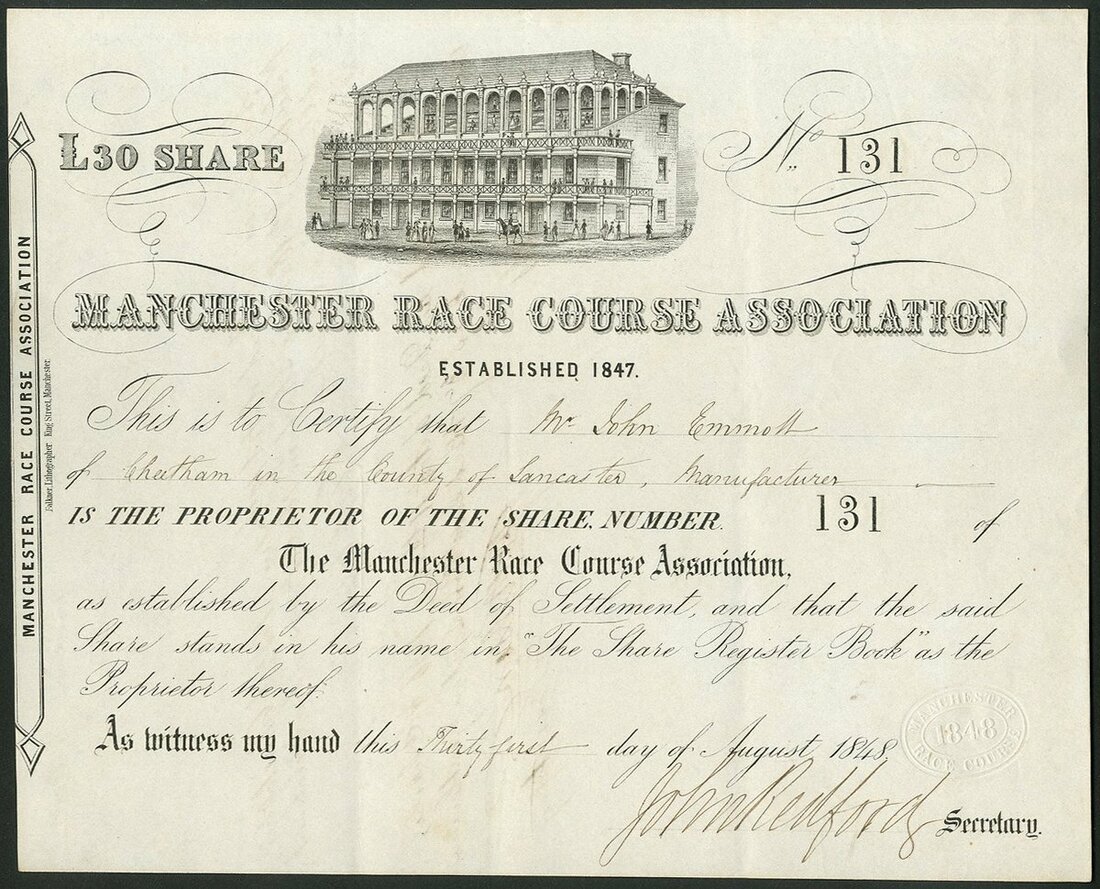 L30 SHARE
No. 131
MANCHESTER RACE COURSE ASSOCIATION
ESTABLISHED 1847.
This is to Certify that Mr. John Emmott
of Cheetham in the County of Lancaster, Manufacturer
IS THE PROPRIETOR OF THE SHARE, NUMBER 131 of
The Manchester Race Course Association,
as established by the Deed of Settlement, and that the said
Share stands in his name in "The Share Register Book" as the
Proprietor thereof.
As witness my hand this Thirty first day of August, 1848
John Redford Secretary.
MANCHESTER RACE COURSE 1848
MANCHESTER RACE COURSE ASSOCIATION
Falkner, Lithographer King Street, Manchester.